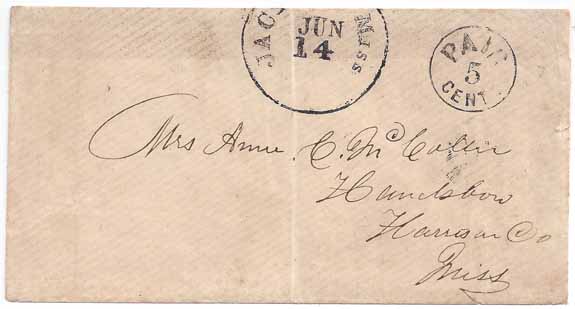 JAC
JUN
14
Miss
PAID
5
CENT
Mrs Anne. C. Mc Collin
Handsboro
Harrison Co
Miss